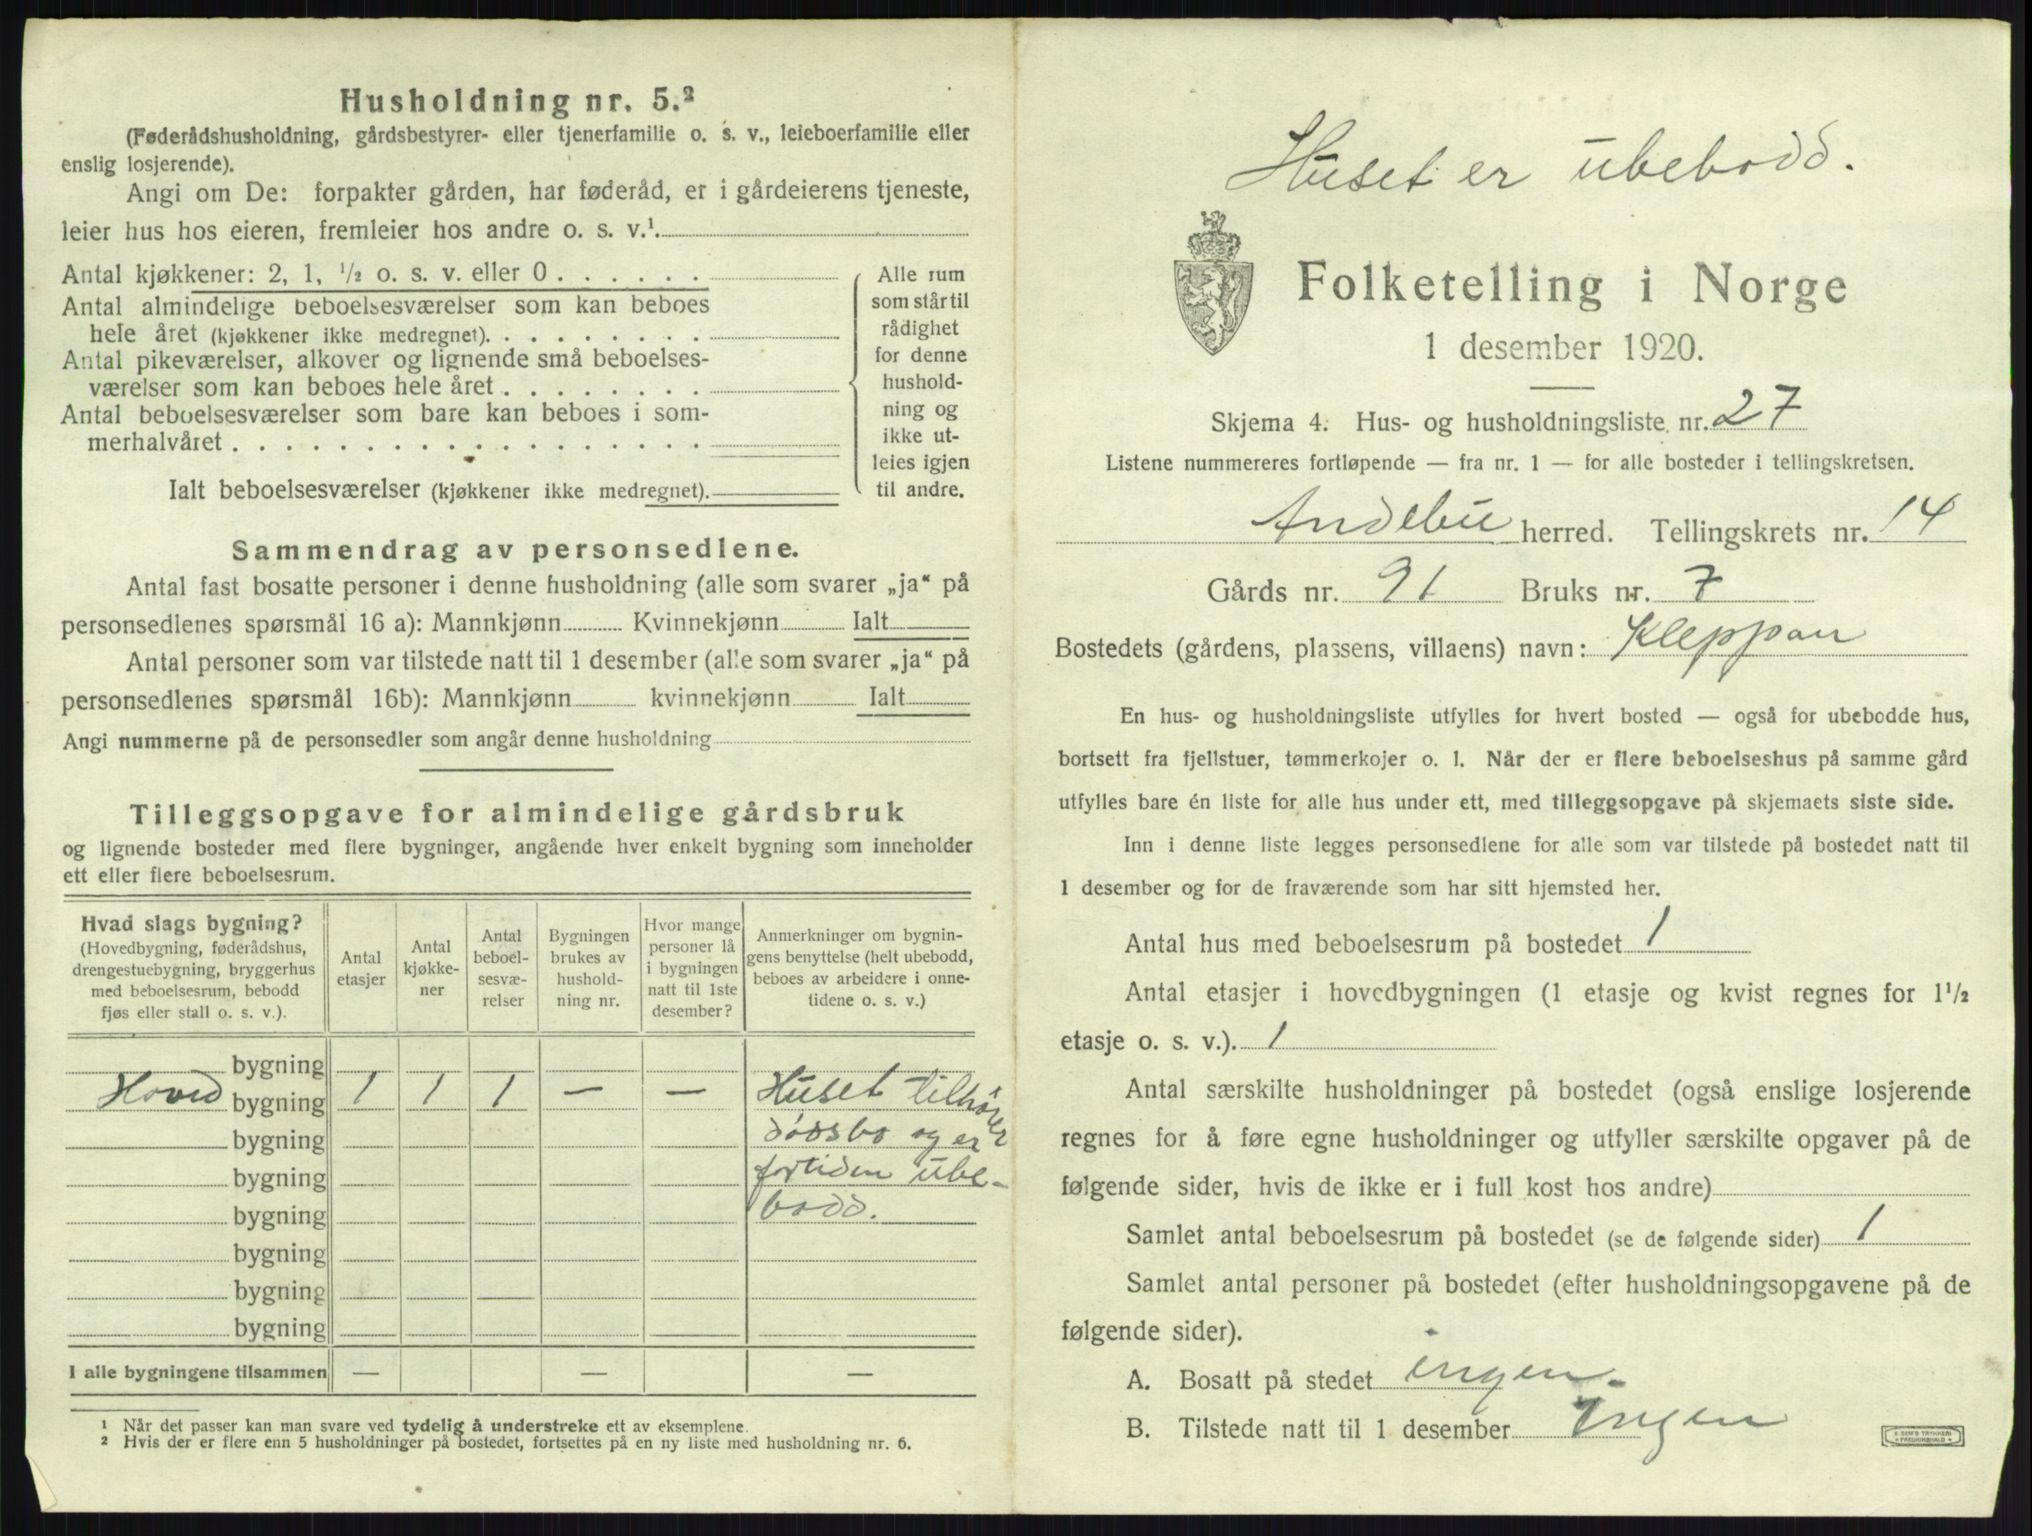 Husholdning nr. 5.²
(Føderådshusholdning, gårdsbestyrer- eller tjenerfamilie o. s. v., leieboerfamilie eller
enslig losjerende).
Angi om De: forpakter gården, har føderåd, er i gårdeierens tjeneste,
leier hus hos eieren, fremleier hos andre o. s. v.¹
Antal kjøkkener: 2, 1, ½ o. s. v. eller 0 . . . . . .
Antal almindelige beboelsesværelser som kan beboes
hele året (kjøkkener ikke medregnet). . . . . . . . .
Antal pikeværelser, alkover og lignende små beboelses-
værelser som kan beboes hele året . . . . . . . .
Antal beboelsesværelser som bare kan beboes i som-
merhalvåret . . . . . . . . . . . . . . . . . .
Ialt beboelsesværelser (kjøkkener ikke medregnet).
Alle rum
som står til
rådighet
for denne
hushold-
ning og
ikke ut-
leies igjen
til andre.
Sammendrag av personsedlene.
Antal fast bosatte personer i denne husholdning (alle som svarer „ja“ på
personsedlenes spørsmål 16 a): Mannkjønn Kvinnekjønn Ialt
Antal personer som var tilstede natt til 1 desember (alle som svarer „ja“ på
personsedlenes spørsmål 16b): Mannkjønn kvinnekjønn Ialt
Angi nummerne på de personsedler som angår denne husholdning
Tilleggsopgave for almindelige gårdsbruk
og lignende bosteder med flere bygninger, angående hver enkelt bygning som inneholder
ett eller flere beboelsesrum.
Hvad slags bygning?
(Hovedbygning, føderådshus,
drengestuebygning, bryggerhus
med beboelsesrum, bebodd
fjøs eller stall o. s. v.).
Antal
etasjer
Antal
kjøkke-
ner
Antal
beboel-
sesvæ-
relser
Bygningen
brukes av
hushold-
ning nr.
Hvor mange
personer lå
i bygningen
natt til 1ste
desember?
Anmerkninger om bygnin-
gens benyttelse (helt ubebodd,
beboes av arbeidere i onne-
tidene o. s. v.)
bygning
Hoved bygning 1 1 1 — — Huset tilhører
bygning dødsbo og er
bygning fortiden ube-
bygning bodd.
bygning
bygning
bygning
I alle bygningene tilsammen — — —
¹ Når det passer kan man svare ved tydelig å understreke ett av eksemplene.
² Hvis der er flere enn 5 husholdninger på bostedet, fortsettes på en ny liste med husholdning nr. 6.
Huset er ubebodd.
Folketelling i Norge
1 desember 1920.
Skjema 4. Hus- og husholdningsliste nr. 27
Listene nummereres fortløpende — fra nr. 1 — for alle bosteder i tellingskretsen.
Andebu herred. Tellingskrets nr. 14
Gårds nr. 91 Bruks nr. 7
Bostedets (gårdens, plassens, villaens) navn: Kleppan
En hus- og husholdningsliste utfylles for hvert bosted — også for ubebodde hus,
bortsett fra fjellstuer, tømmerkojer o. l. Når der er flere beboelseshus på samme gård
utfylles bare én liste for alle hus under ett, med tilleggsopgave på skjemaets siste side.
Inn i denne liste legges personsedlene for alle som var tilstede på bostedet natt til
1 desember og for de fraværende som har sitt hjemsted her.
Antal hus med beboelsesrum på bostedet 1
Antal etasjer i hovedbygningen (1 etasje og kvist regnes for 1½
etasje o. s. v.). 1
Antal særskilte husholdninger på bostedet (også enslige losjerende
regnes for å føre egne husholdninger og utfyller særskilte opgaver på de
følgende sider, hvis de ikke er i full kost hos andre)
Samlet antal beboelsesrum på bostedet (se de følgende sider) 1
Samlet antal personer på bostedet (efter husholdningsopgavene på de
følgende sider).
A. Bosatt på stedet ingen.
B. Tilstede natt til 1 desember Ingen